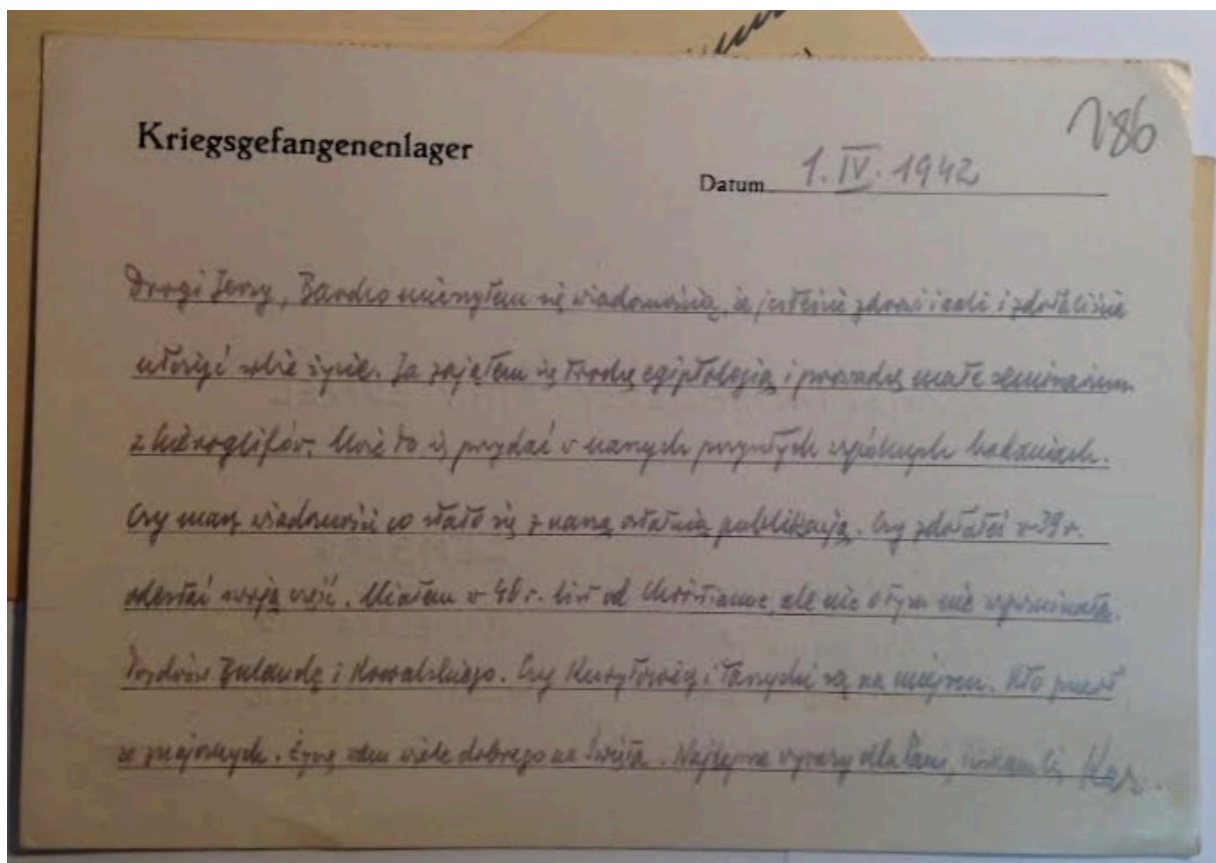 186
Kriegsgefangenenlager
Datum 1. IV. 1942
Drogi Jerzy, Bardzo ucieszyłem się wiadomością, że jesteście zdrowi i cali i zdołaliście
ułożyć sobie życie. Ja zająłem się trochę egiptologią i prowadzę małe seminarium
z hieroglifów. Może to się przydać w naszych przyszłych wspólnych badaniach.
Czy masz wiadomości co stało się z naszą ostatnią publikacją. Czy zdołałeś w 39 r.
odesłać swoją część. Miałem w 40 r. list od Christiane, ale nic o tym nie wspominała.
Pozdrów Gulandę i Kowalskiego. Czy Kuryłowicz i są na miejscu. Kto
ze znajomych. Życzę wam wiele dobrego na Święta. Najlepsze wyrazy dla Pani, ściskam Cię Kaz.